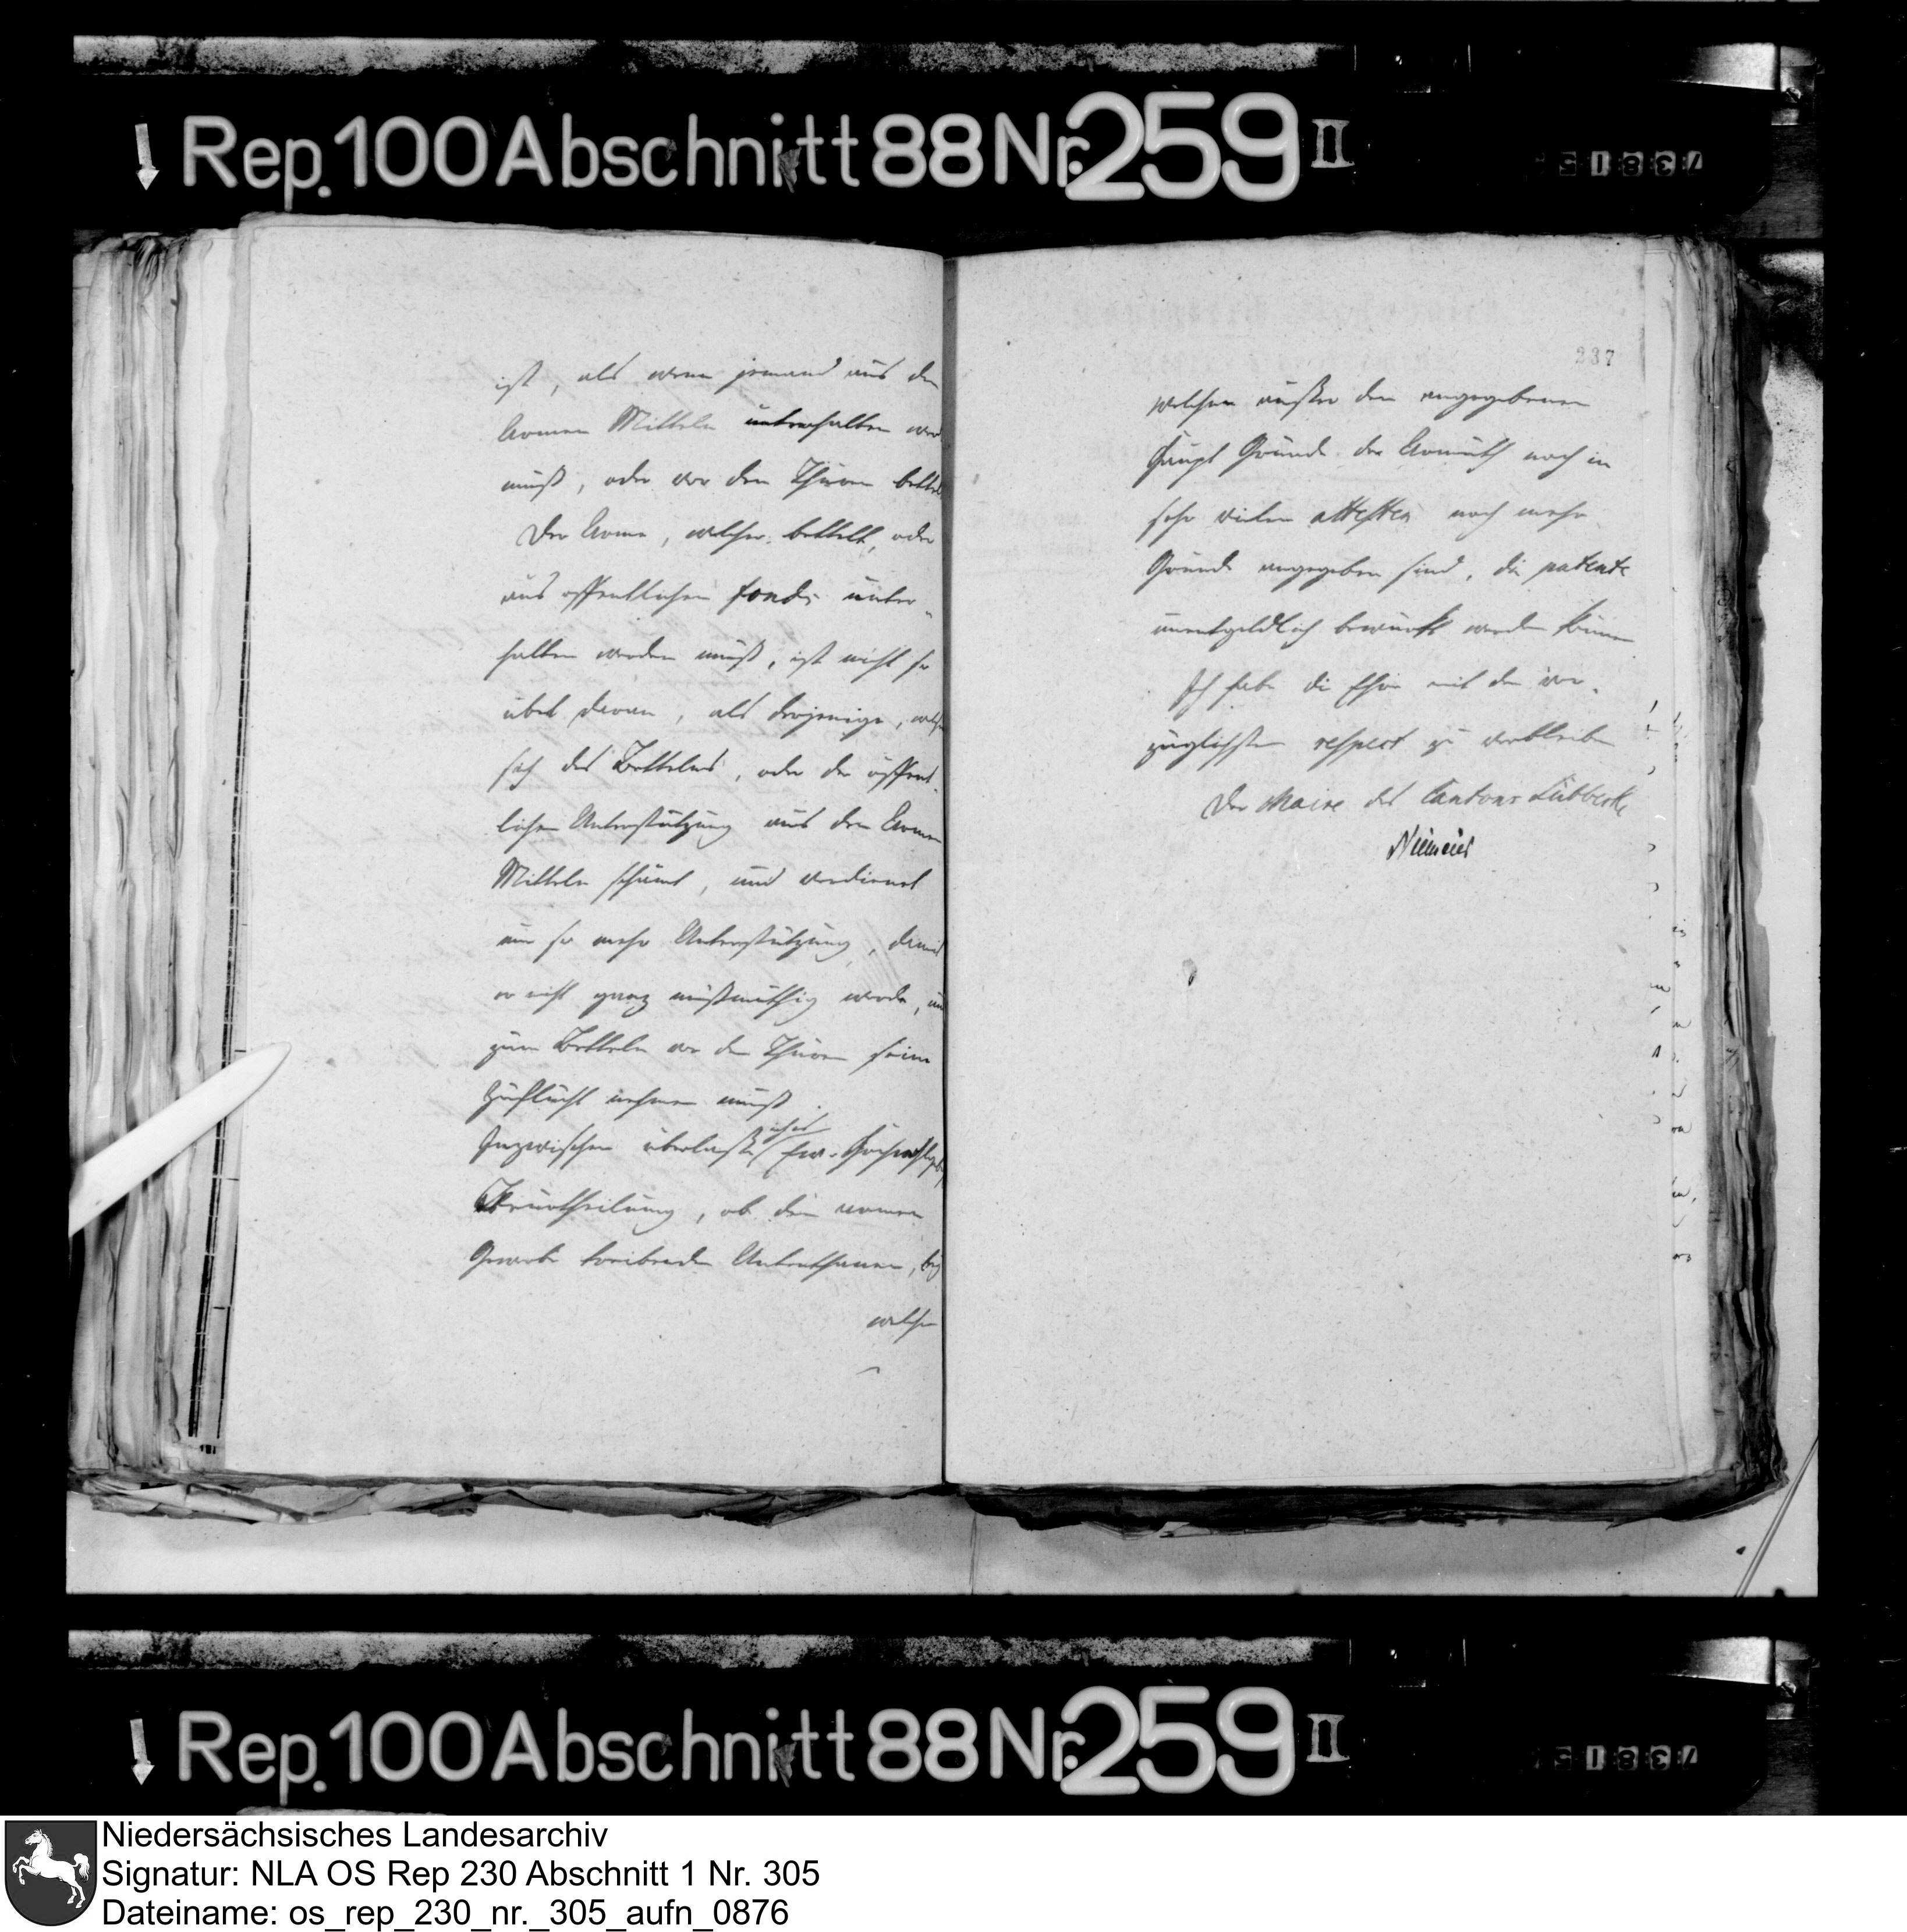 Rep. 100 Abschnitt 88 Nr. 259 II
73815
ist, als wenn jemand aus den
Armen Mitteln unterhalten wer
muß, oder vor den Thüren bettel
Der Arme, welcher bettelt, oder
aus offentlichen fonds unter-
halten werden muß, ist nicht so
übel daran, als derjenige, welcher
sich des Bettelns, oder der öffent-
lichen Unterstützung aus den Armen
Mitteln schämt, und verdienet
um so mehr Unterstützung, damit
er nicht ganz mißmüthig werde, und
zum Betteln vor den Thüren seine
Zuflucht nehmen muß.
Inzwischen überlasse ich es Ew. Hochwohlgeb
Beurtheilung, ob die armen
Gewerbe treibenden Unterthanen, bey
welchen
237
welchen außer den angegebenen
Haupt Gründe der Armuth noch in
sehr vielen attesten noch mehr
Gründe angegeben sind, die patente
unentgeldlich bewürkt werden können
Ich habe die Ehre mit dem vor-
züglichsten respect zu verbleiben
Der Maire des Cantons Lübbecke
Niemeier
Rep. 100 Abschnitt 88 Nr. 259 II
73815
Niedersächsisches Landesarchiv
Signatur: NLA OS Rep 230 Abschnitt 1 Nr. 305
Dateiname: os_rep_230_nr._305_aufn_0876